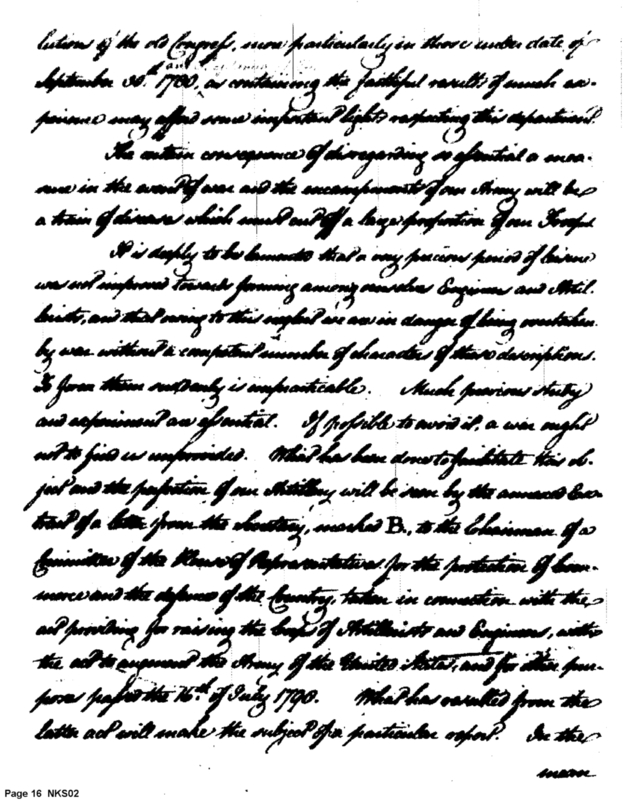 lutions of the old Congress, more particularly in those under date of
September 30.th 1780, as containing the faithful results of much ex-
perience may afford some important lights respecting this department.
The certain consequence of disregarding so essential a mea-
sure in the event of war and the encampments of our Army will be
a train of diseases which must cut off a large proportion of our Troops
It is deeply to be lamented that a very precious period of leisure
was not improved towards forming among ourselves Engineers and Artil-
lerists, and that owing to this neglect we are in danger of being overtaken
by war without a competent number of characters of these descriptions.
To form them suddenly is impracticable. Much previous study
and experiment are essential. If possible to avoid it, a war ought
not to find us unprovided. What has been done to facilitate this ob-
ject and the perfection of our Artillery will be seen by the annexed Ex-
tract of a letter from the Secretary, marked B., to the Chairman of a
Committee of the House of Representatives for the protection of Com-
merce and the defence of the Country, taken in connection with the
act providing for raising the Corps of Artillerists and Engineers, with
the act to augment the Army of the United States, and for other pur-
poses passed the 16.th of July 1798. What has resulted from the
latter act will make the subject of a particular report. In the
mean
Page 16 NKS02